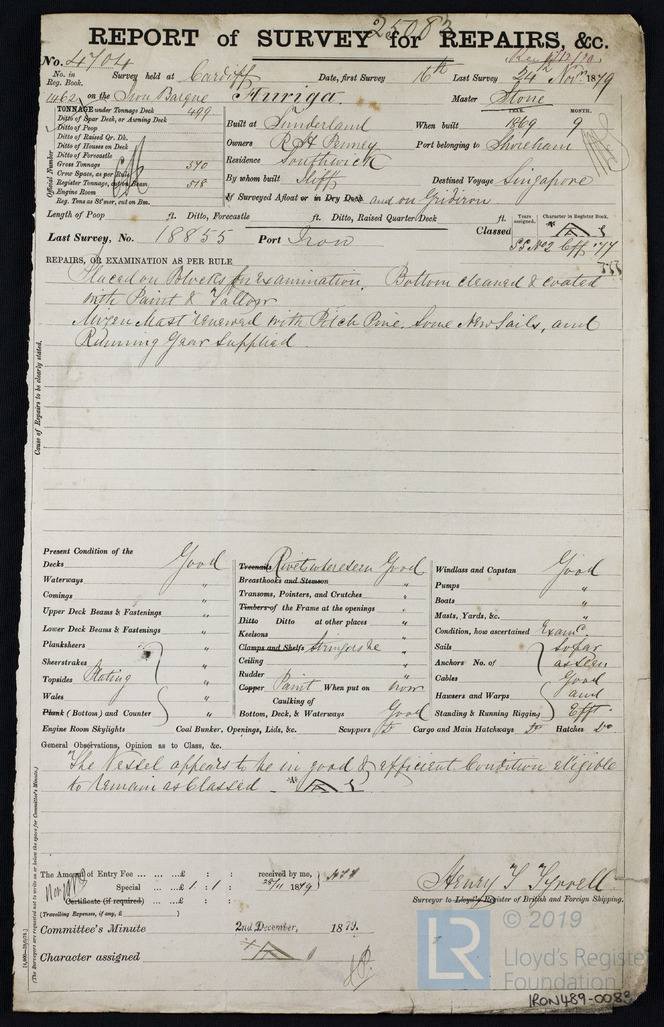 25083
REPORT of SURVEY for REPAIRS, &c.
No. 4704
No. in Reg. Book. Survey held at Cardiff Date, first Survey 16th Last Survey 24th Novr 1879
1462 on the Iron Barque Auriga. Master Stone
TONNAGE under Tonnage Deck 499
Ditto of Spar Deck, or Awning Deck
Ditto of Poop
Ditto of Raised Qr. Dk.
Ditto of Houses on Deck
Ditto of Forecastle
Gross Tonnage 540
Crew Space, as per Rule
Register Tonnage, cut on Beam 518
Engine Room
Reg. Tons as St'mer, cut on Bm.
Official Number
Built at Sunderland When built YEAR. 1869 MONTH. 9
Owners R H Penney Port belonging to Shoreham
Residence Southwick
By whom built Iliff Destined Voyage Singapore
If Surveyed Afloat or in Dry Dock and on Gridiron
Length of Poop ft. Ditto, Forecastle ft. Ditto, Raised Quarter Deck ft.
Years assigned. Character in Register Book.
Classed A 1
Last Survey, No. 18855 Port Iron SS No 2 Cff 77
REPAIRS, OR EXAMINATION AS PER RULE
Placed on Blocks for Examination. Bottom cleaned & coated
with Paint & Tallow
Mizen Mast renewed with Pitch Pine. Some New Sails, and
Running Gear supplied.
Cause of Repairs to be clearly stated.
Present Condition of the
Decks Good
Waterways "
Comings "
Upper Deck Beams & Fastenings "
Lower Deck Beams & Fastenings "
Planksheers
Sheerstrakes
Topsides Plating "
Wales
Plank (Bottom) and Counter
Treenails Rivets where seen Good
Breasthooks and Stemson "
Transoms, Pointers, and Crutches "
Timbers of the Frame at the openings "
Ditto Ditto at other places "
Keelsons "
Clamps and Shelfs Stringers &c "
Ceiling "
Rudder "
Copper Paint When put on now
Caulking of
Bottom, Deck, & Waterways Good
Windlass and Capstan Good
Pumps "
Boats "
Masts, Yards, &c. "
Condition, how ascertained Examd.
Sails so far
Anchors No. of as seen
Cables Good
Hawsers and Warps and
Standing & Running Rigging Efft.
Engine Room Skylights Coal Bunker, Openings, Lids, &c. Scuppers Do Cargo and Main Hatchways Do Hatches Do
General Observations, Opinion as to Class, &c.
The Vessel appears to be in good & efficient Condition eligible
to remain as Classed A 1
(The Surveyors are requested not to write on or below the space for Committee's Minute.)
The Amount of Entry Fee ... ... ...£ : : received by me,
Special ... ...£ 1 : 1 : 28/11 1879
Certificate (if required) ... £ : :
(Travelling Expenses, if any, £ )
Henry T Tyrrell.
Surveyor to Lloyd's Register of British and Foreign Shipping.
Committee's Minute 2nd December, 1879.
Character assigned A 1
LR © 2019
Lloyd's Register
Foundation
IRON489-0083